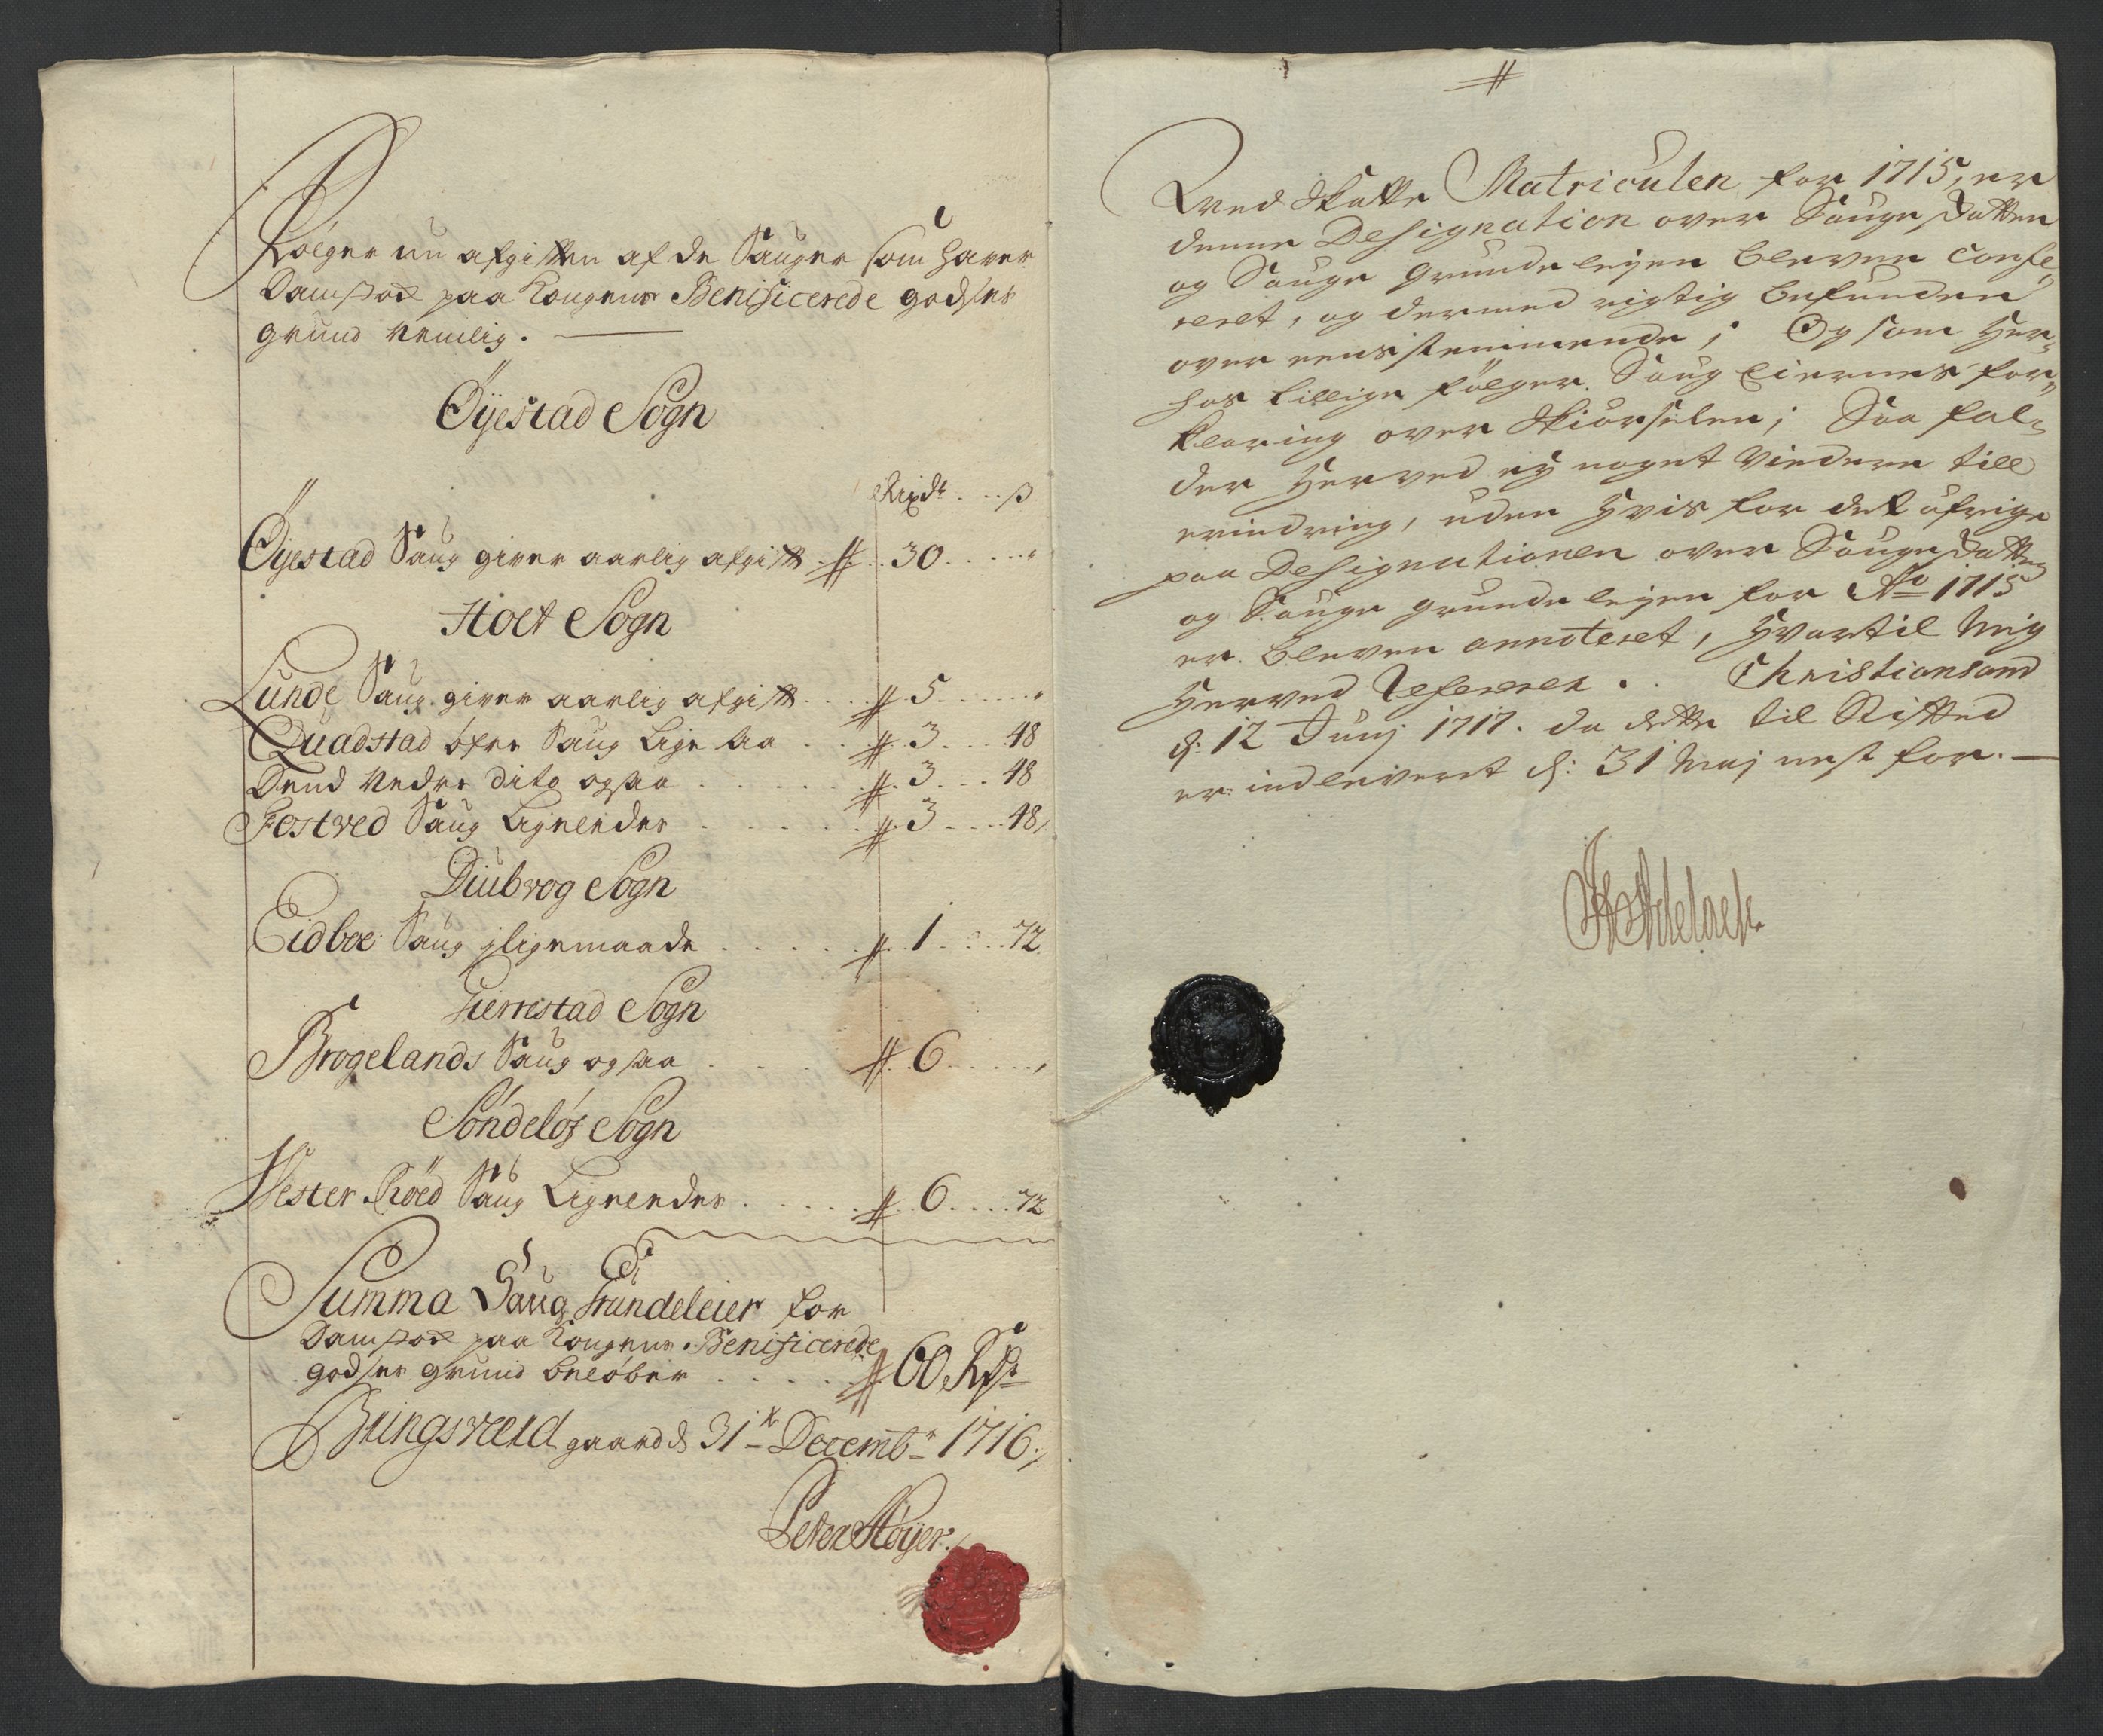 Følger nu afgiften af de Sauger som haver
Damstoe paa Kongens Benificerede godses
grund nemlig.
Øyestad Sogn
Rixdr ß
Øyestad Saug giver aarlig afgift 30
Holt Sogn
Lunde Saug giver aarlig afgift 5
Quadstad øfre Saug lige saa 3 48
Dend nedre dito ogsaa 3 48
Fostved Saug Ligneendes 3 48
Diubvog Sogn
Eidboe Saug jligemaade 1 72
Gierrestad Sogn
Brogelands Saug ogsaa 6
Søndeløf Sogn
Vester Røed Saug Ligneendes 6 72
Summa Saug Grundeleier for
Damstoe paa Kongens Benificerede
godses grund beløber 60 Rdr
Bringsværd gaard d 31te Decembr 1716
Peter Høyer
Ved Skatte Matriculen for 1715, er
denne Designation over Sauge Skatten
og Sauge grunde leyen bleven confe-
reret, og dermed rigtig befunden
over eensstemmende; Og som her-
hos tillige følger Saug Eiernes for-
klaring over Skiørselen; Saa fal-
der herved ey noget Viedere till
erindring, uden hvis for det øfrige
paa Designationen over Sauge Skatten
og Sauge grunde leyen for Ao 1715
er bleven annoteret, hvortil mig
herved Refererer. Christiansand
d: 12 Junj 1717. da dette til Stifted
er indleveret d: 31 Maj nest for.